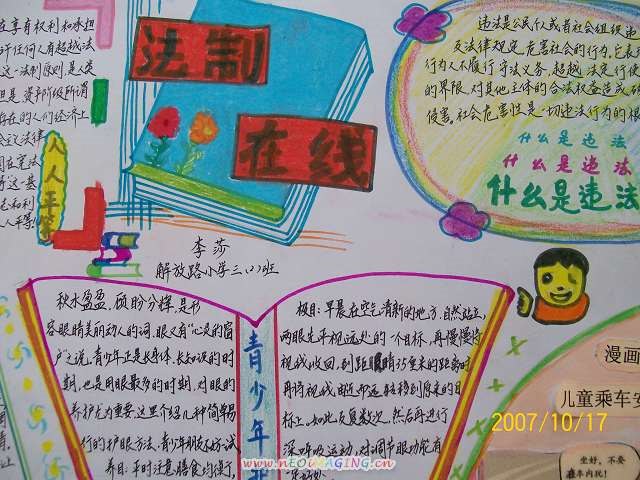 在享有权利和承担
许任何人有超越法
这一法制原则,是人类
但是资产阶级所谓
存在的人们经济上
会主义法律
国在宪法
将这一基
人平等!
人人平等
法制
在线
违法是公民个人或者社会组织违
反法律规定,危害社会的行为,它表
行为人不履行守法义务,超越法定行使
的界限,对其他主体的合法权益造成破
侵害。社会危害性是一切违法行为的根
什么是违法
什么是违法
什么是违法
李莎
解放路小学三(2)班
秋水盈盈,顾盼分辉,是形
容眼睛美丽动人的词,眼又有“心灵的窗
户”之说,青少年正是长身体、长知识的时
期,也是用眼最多的时期,对眼的
养护尤为重要.这里介绍几种简单易
行的护眼方法,青少年朋友不妨试
养目:平时注意膳食均衡行,
青少年
极目:早晨在空气清新的地方,自然站立,
两眼先平视远处的一个目标,再慢慢将
视线收回,到距眼睛35厘米的距离时
再将视线由近而远转移到原来的目
标上,如此反复数次,然后再进行
深呼吸运动,对调节眼功能有
漫画
儿童乘车安
坐好,不要
在车内玩!
2007/10/17
www.nEOiMAGING.cn